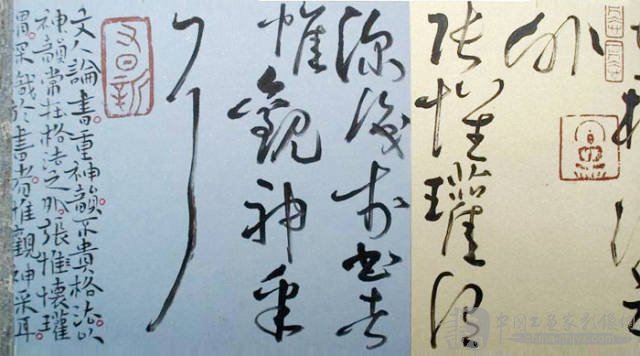 外
張懷瓘謂
深識於書者
惟觀神采
耳
又日新
文人論書重神韻不貴格法以
神韻常在格法之外張惟懷瓘
謂深識於書者惟觀神采耳